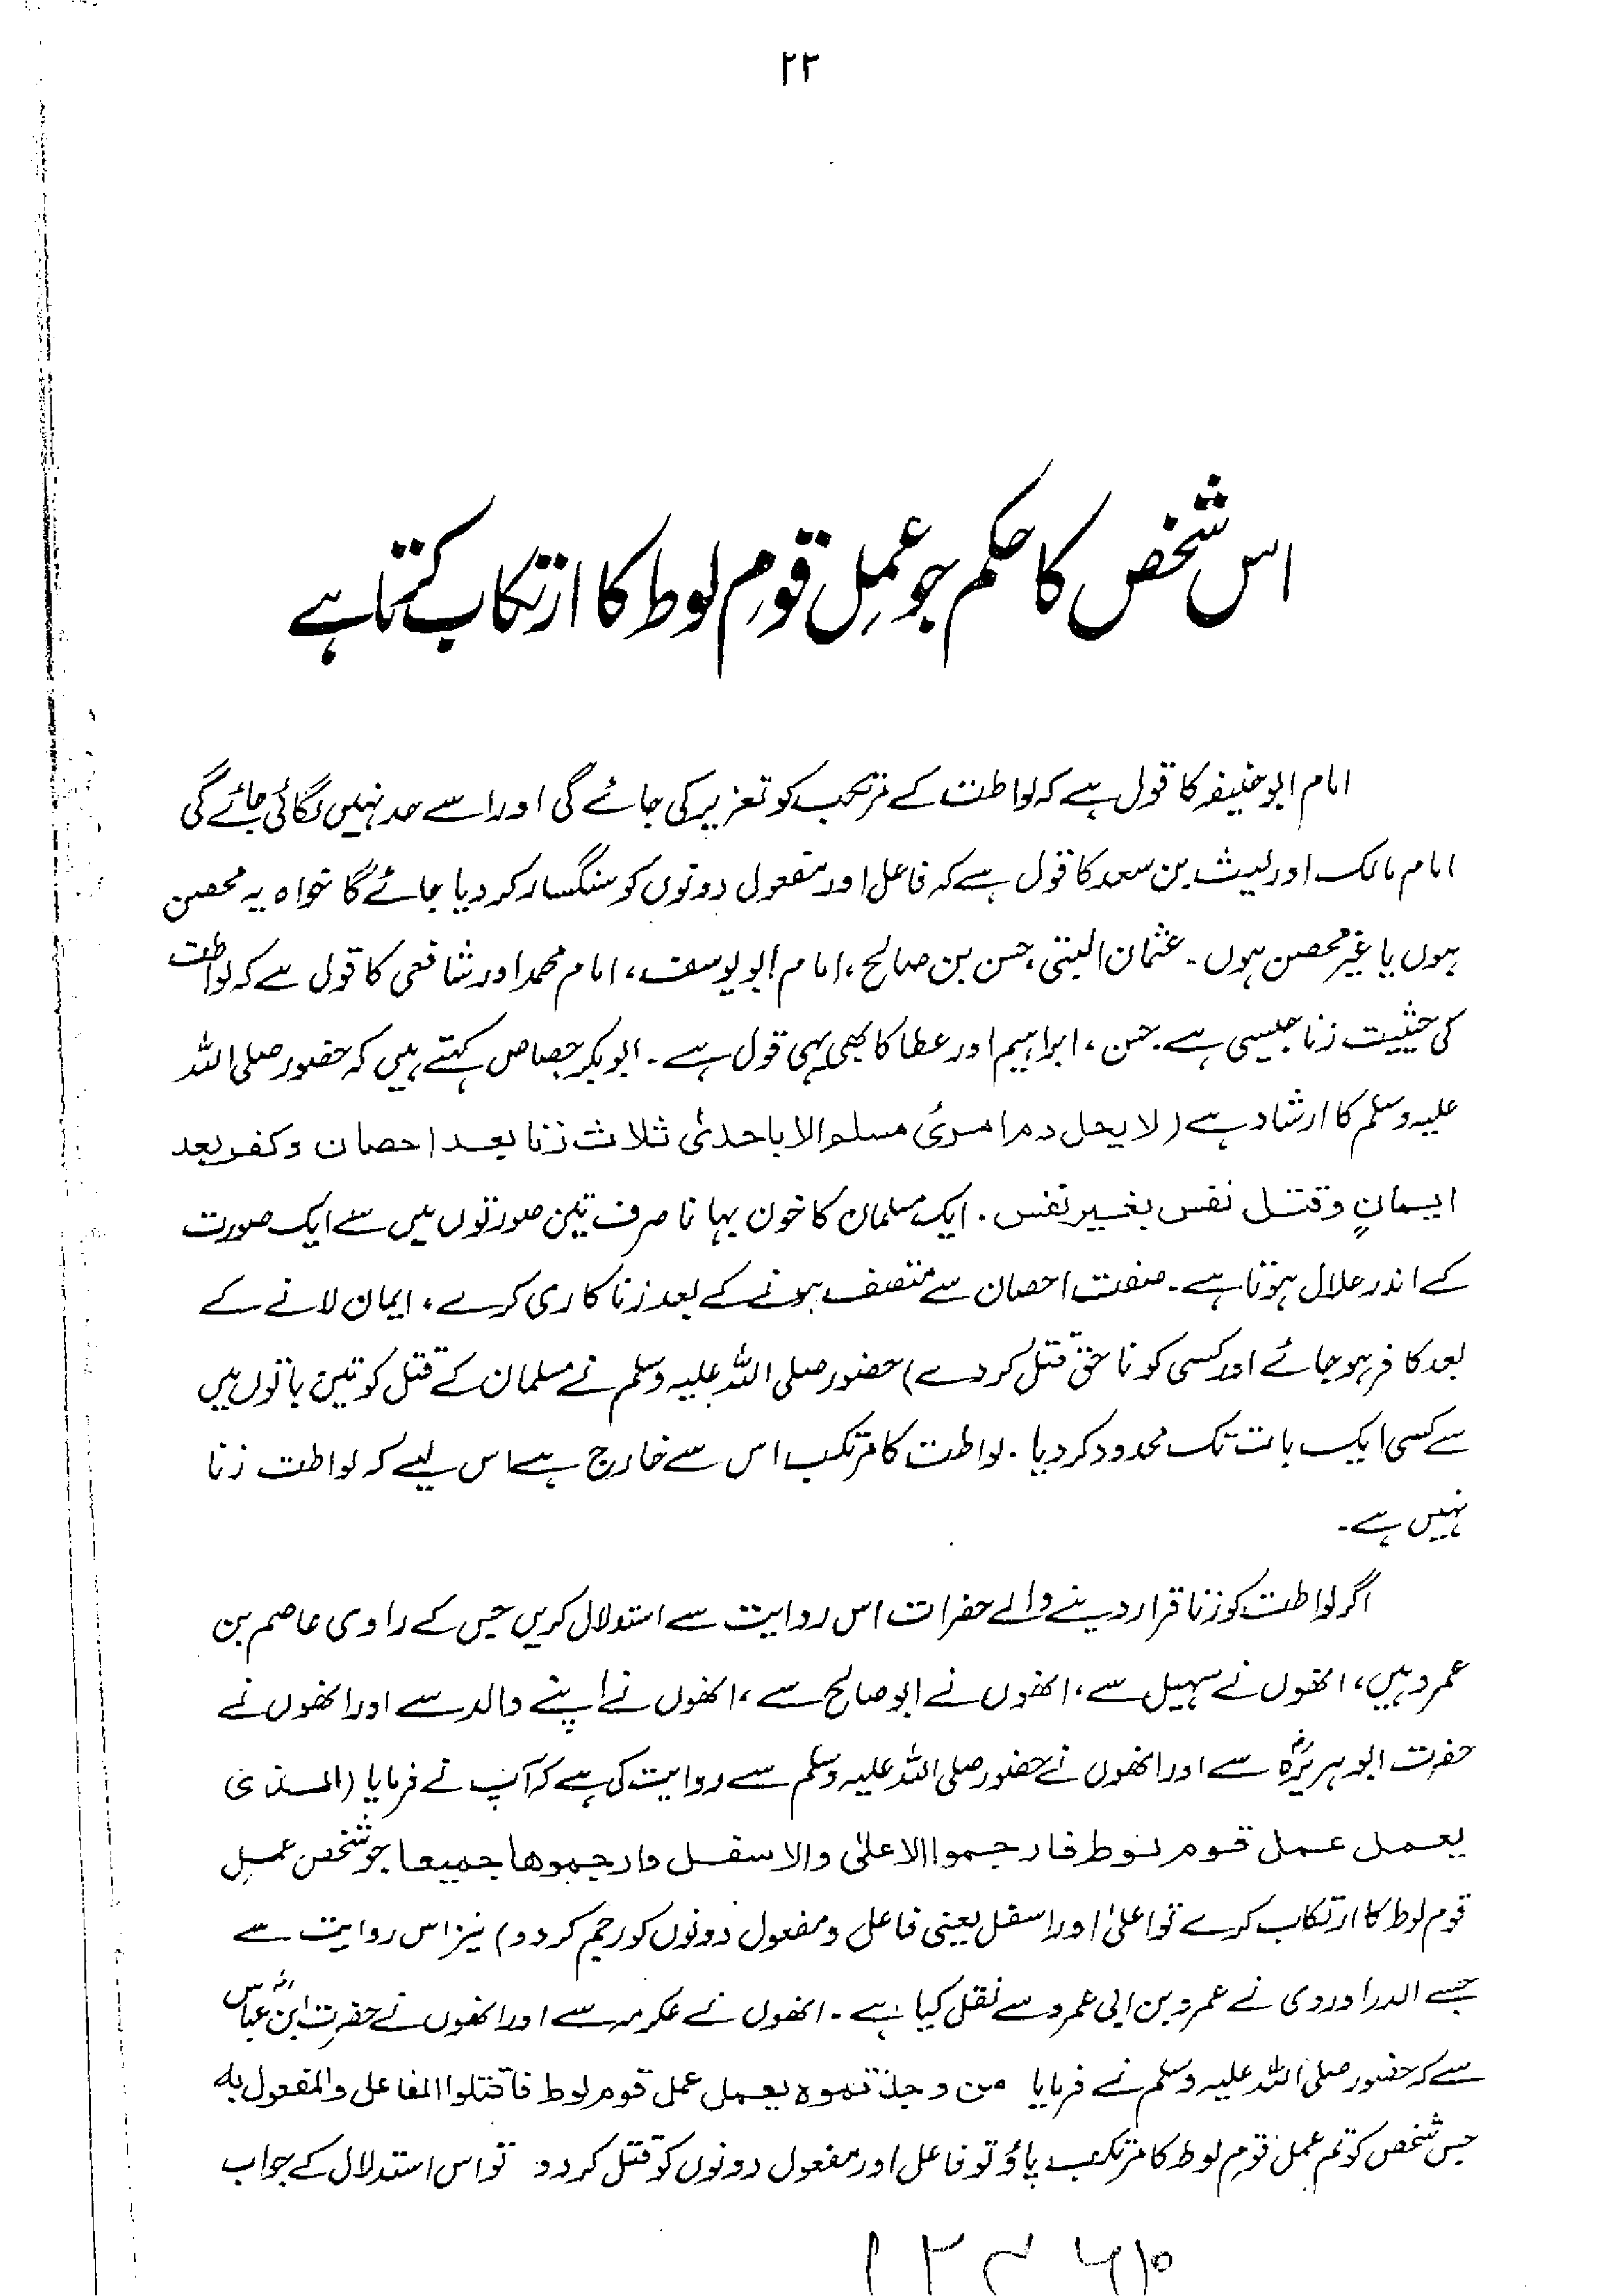 ۲۲
اس شخص کا حکم جو عملِ قومِ لوط کا ارتکاب کرتا ہے
امام ابو حنیفہ کا قول ہے کہ لواطت کے مرتکب کو تعزیر کی جائے گی اور اسے حد نہیں لگائی جائے گی
امام مالک اور لیث بن سعد کا قول ہے کہ فاعل اور مفعول دونوں کو سنگسار کر دیا جائے گا خواہ یہ محصن
ہوں یا غیر محصن ہوں۔ عثمان البتی، حسن بن صالح، امام ابو یوسف، امام محمد اور شافعی کا قول ہے کہ لواطت
کی حیثیت زنا جیسی ہے۔ حسن، ابراہیم اور عطا کا بھی یہی قول ہے۔ ابوبکر جصاص کہتے ہیں کہ حضور صلی اللہ
علیہ وسلم کا ارشاد ہے (لا یحل دم امرئ مسلم الا باحدیٰ ثلاث زنا بعد احصان و کفر بعد
ایمانٍ و قتل نفس بغیر نفس۔ ایک مسلمان کا خون بہانا صرف تین صورتوں میں سے ایک صورت
کے اندر حلال ہوتا ہے۔ صفت احصان سے متصف ہونے کے بعد زنا کاری کرے، ایمان لانے کے
بعد کافر ہو جائے اور کسی کو ناحق قتل کر دے) حضور صلی اللہ علیہ وسلم نے مسلمان کے قتل کو تین باتوں میں
سے کسی ایک بات تک محدود کر دیا۔ لواطت کا مرتکب اس سے خارج ہے اس لیے کہ لواطت زنا
نہیں ہے۔
اگر لواطت کو زنا قرار دینے والے حضرات اس روایت سے استدلال کریں جس کے راوی عاصم بن
عمرو ہیں، انھوں نے سہیل سے، انھوں نے ابو صالح سے، انھوں نے اپنے والد سے اور انھوں نے
حضرت ابو ہریرہؓ سے اور انھوں نے حضور صلی اللہ علیہ وسلم سے روایت کی ہے کہ آپ نے فرمایا (الذی
یعمل عمل قوم لوط فارجموا الاعلیٰ والاسفل وارجموھا جمیعا جو شخص عملِ
قوم لوط کا ارتکاب کرے تو اعلیٰ اور اسفل یعنی فاعل و مفعول دونوں کو رجم کر دو) نیز اس روایت سے
جسے الدراوردی نے عمرو بن ابی عمرو سے نقل کیا ہے۔ انھوں نے عکرمہ سے اور انھوں نے حضرت ابن عباسؓ
سے کہ حضور صلی اللہ علیہ وسلم نے فرمایا من وجدتموہ یعمل عمل قوم لوط فاقتلوا الفاعل والمفعول بہ
جس شخص کو تم عمل قومِ لوط کا مرتکب پاؤ تو فاعل اور مفعول دونوں کو قتل کر دو تو اس استدلال کے جواب